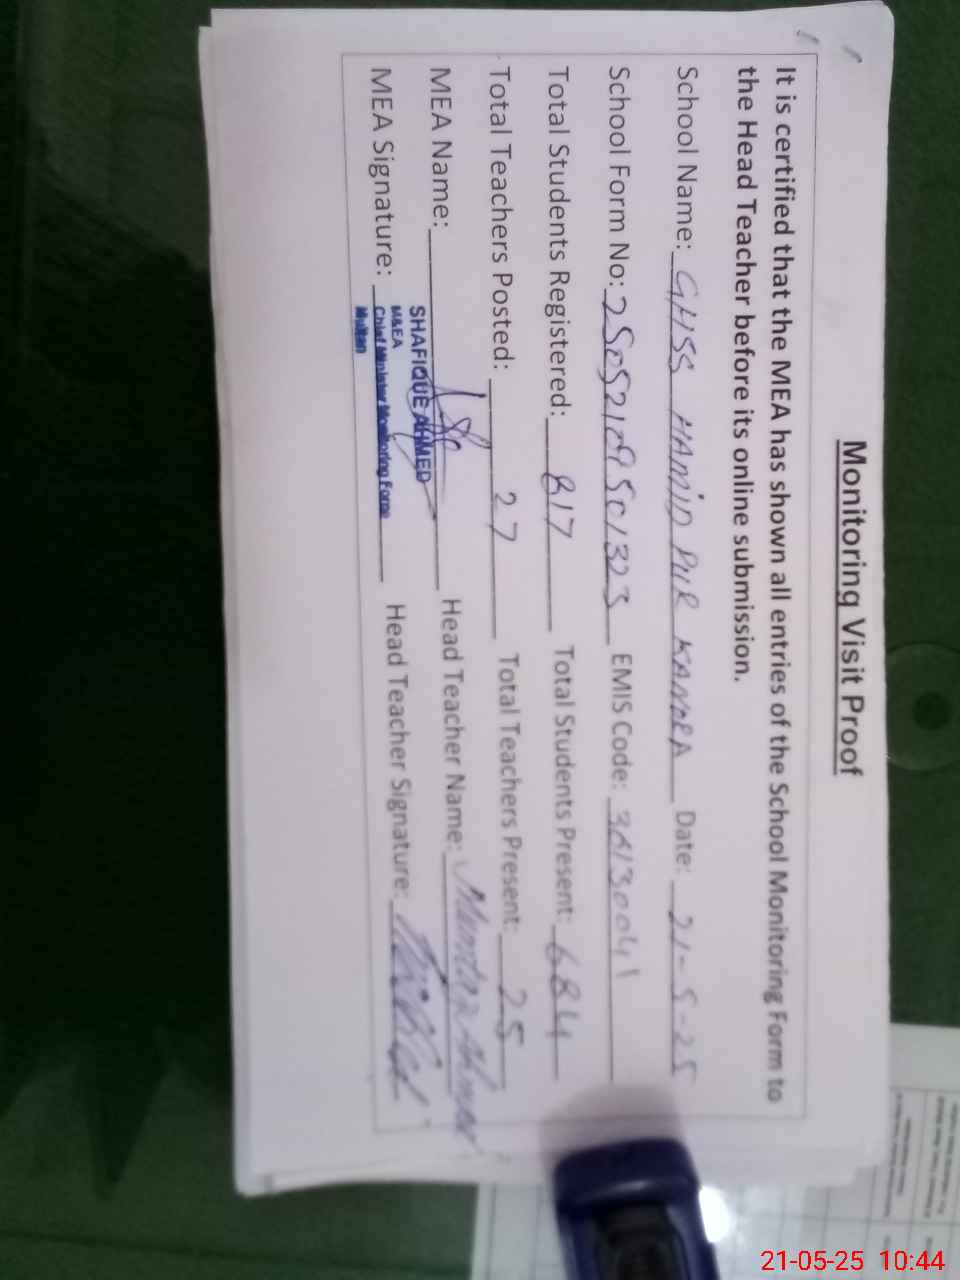 Monitoring Visit Proof
It is certified that the MEA has shown all entries of the School Monitoring Form to
the Head Teacher before its online submission.
School Name: GHSS HAMID PUR KANORA Date: 21-5-25
School Form No: EMIS Code:
Total Students Registered: 817 Total Students Present: 684
Total Teachers Posted: 27 Total Teachers Present: 25
MEA Name: Head Teacher Name:
SHAFIQUE AHMED
MEA Signature: Head Teacher Signature:
M&EA
Chief Minister Monitoring Force
Multan
21-05-25 10:44